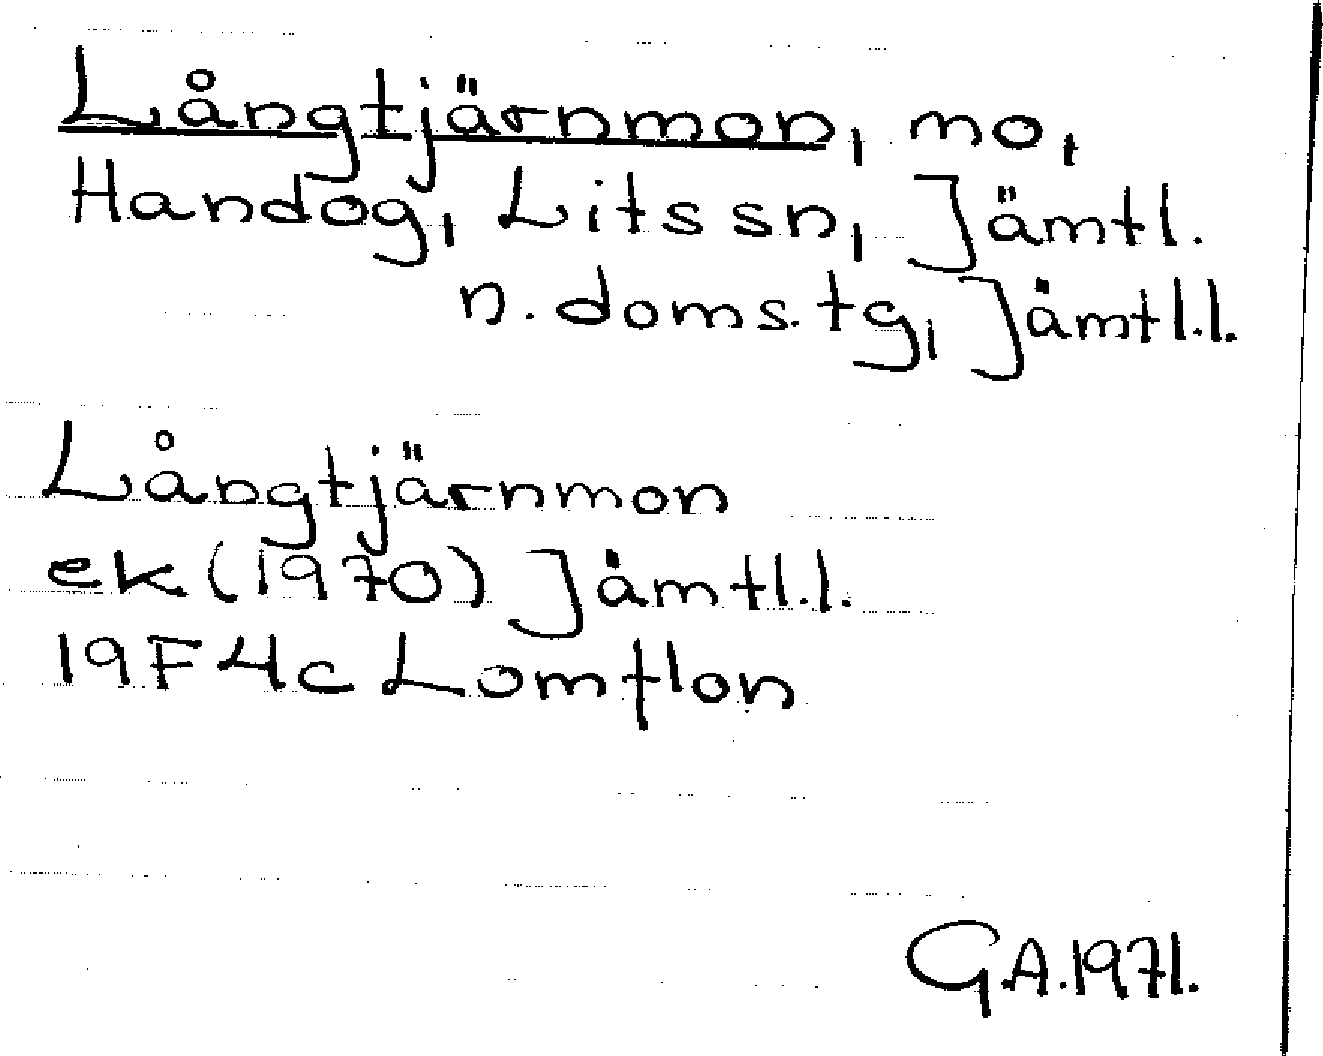 Långtjärnmon, mo,
Handog, Lits sn, Jämtl.
n. doms. tg, Jämtl.l.
Långtjärnmon
ek (1970) Jämtl.l.
19F4c Lomtlon
G.A.1971.